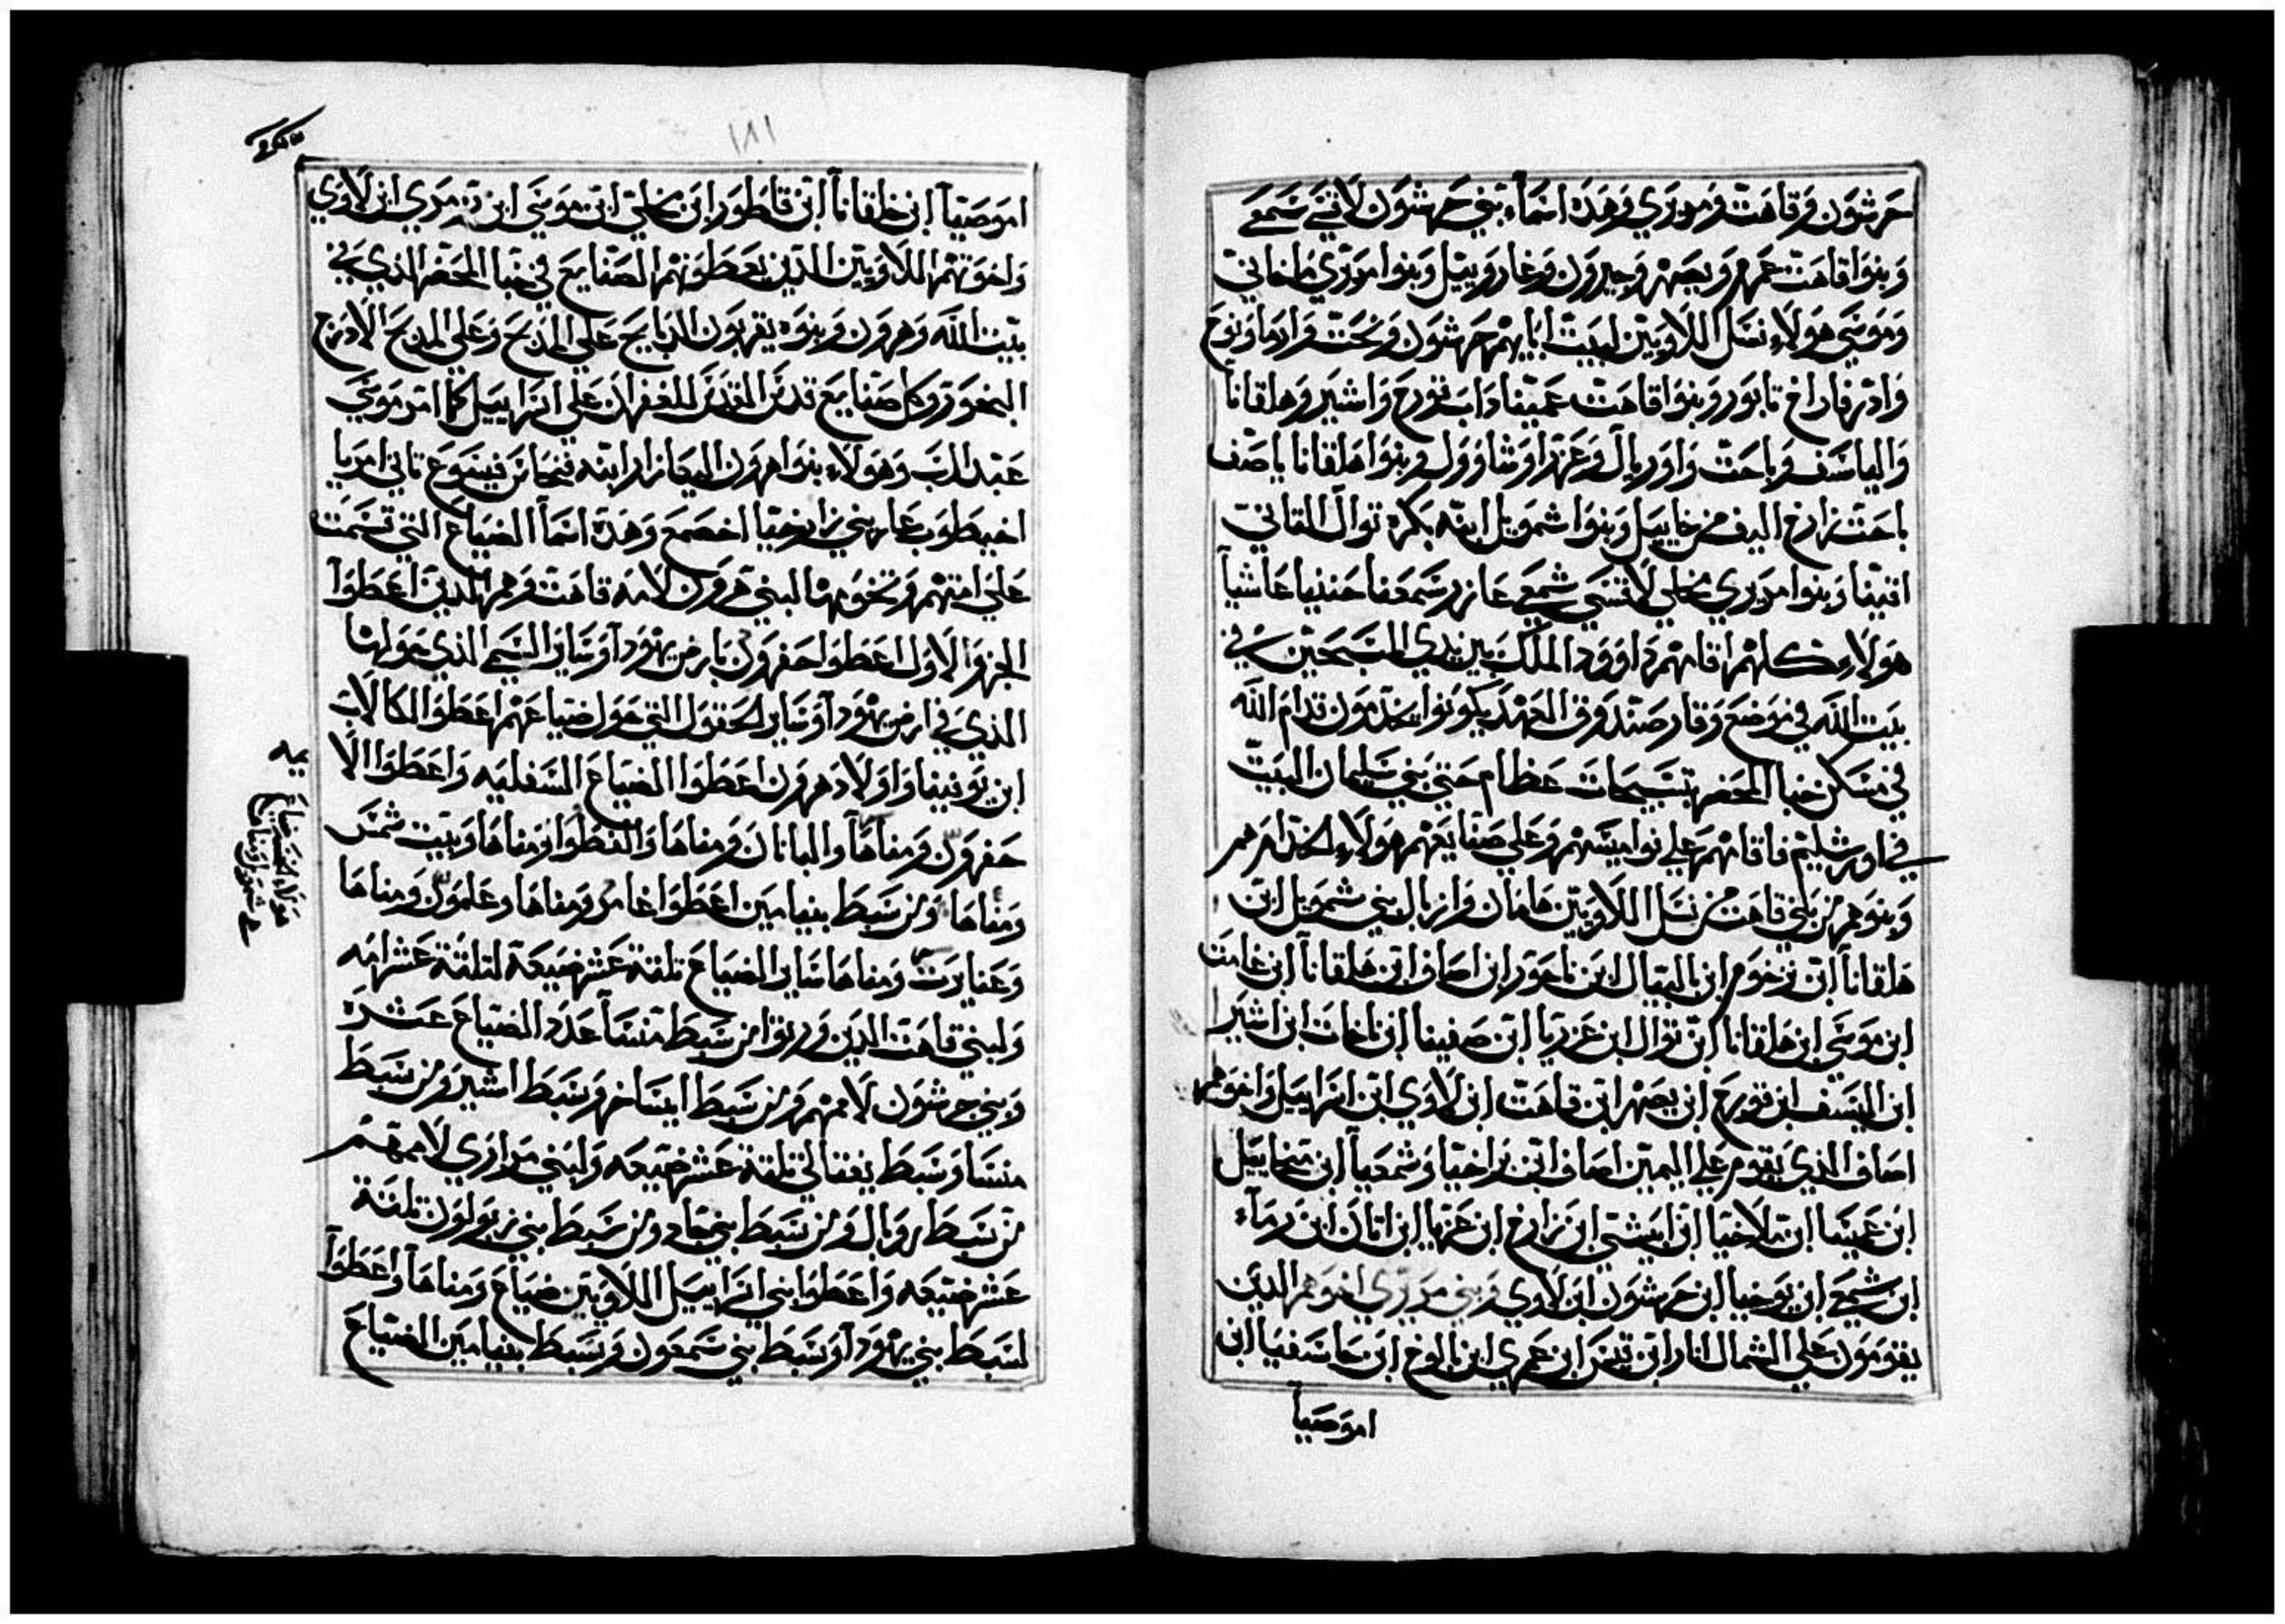 جرشون وقاهت ومريري وهذه اسماء بني جرشون لافني سمعي
وبنوا قاهت عمرم ويصهر وحبرون وغازوييل وبنوا مرري ماخاني
وموسي هولاء نسل اللاويين لبيت ابايهم جرشون ونحت وادما ونوح
وادر فاراخ تابور وبنوا قاهت عمينا داب قورح واشير وهلقانا
والياسف وباحت واوريال وعزرا وشاوول وبنوا هلقانا ياصف
باحت زارخ اليف من خاييل وبنوا شموييل ابنه بكره نوال القاني
اقنيفا وبنوا مريري محلي لافسي شمعي عازر سمعفا حننيا عاشيا
هولاء كلهم اقامهم داوود الملك بين يدي المسبحين في
بيت الله في موضع وقار صندوق العهد يكونوا يخدمون قدام الله
في مسكن خبا المحضر بتسبيحات عظام حتي بني سليمان البيت
في اورشليم فاقامهم علي نواميسهم وعلي صنايعهم هولاء الخدام هم
وبنوهم من بني قاهت من نسل اللاويين هامان وازبال بني شمويل ابن
هلقانا ابن نرخوم ابن اليال ابن ناحور ابن اصاف ابن هلقانا ابن عامت
ابن موسي ابن هلقانا ابن نوال ابن عزريا ابن صفينا ابن ناحات ابن اشير
ابن اليسف ابن قورح ابن يصهر ابن قاهت ابن لاوي ابن اسراييل واخوهم
اصاف الذي يقوم علي اليمين اصاف ابن براخيا وشمعيا ابن ميخاييل
ابن عيسا ابن ملاخيا ابن ايشي ابن زارخ ابن عزيا ابن اتان ابن رماء
ابن شمعي ابن يوخيا ابن جرشون ابن لاوي وبني مريري اخوهم الدين
يقومون علي الشمال اتار ابن قيس ابن عمري ابن مالوخ ابن حاسفيا ابن
اموصيا
١٨١
اموصيا ابن خلقانا ابن قاطور ابن محلي ابن موسي ابن مرري ابن لاوي
واخوتهم اللاويين الدين يعطونهم الصنايع في خبا المحضر الذي في
بيت الله وهرون وبنوه يقربون الدبايح علي المدبح وعلي المدبح الاد رج
البخور وكل صنايع قدس القدس للغفران علي اسراييل كما امر موسي
عبد الرب وهولاء بنوا هرون اليعازار ابنه فنحاس فيسوع تاني امريا
اخيطوب عاريني زارخيا اخصمع وهدة اسما الضياع التي قسمت
علي امتهم وتخومها لبني هرون لامة قاهت وهم الدين اعطوا
الجزو الاول اعطوا حفرون بارض يهودا وساير النسحي الذي حولها
الذي في ارض يهودا وساير الحقول التي حول ضياعهم اعطوا لكالاب
ابن يوفنيفا واولاد هرون اعطوا الضياع السفليه واعطوا الا
حفرون ومناها والبانان ومناها والفطوا ومناها وبيت شمس
ومناها ومن سبط بنيامين اعطوا غامر ومناها وعلمون ومناها
وعنايرت ومناها ساير الضياع تلتة عشر ضيعة لتلتة عشر امه
ولبني قاهت الدين ورتوا من سبط منسا عدد الضياع عشره
وبني جرشون لاممهم ومن سبط ايساخر وسبط اشير ومن سبط
منسا وسبط يفتالي تلتة عشر ضيعه ولبني مراري لاممهم
من سبط روبال ومن سبط بني جاد ومن سبط بني زبولون تلتة
عشر ضيعه واعطوا بني اسراييل اللاويين ضياع ومناها واعطوا
لسبط بني يهودا وسبط بني شمعون وسبط بنيامين الضياع